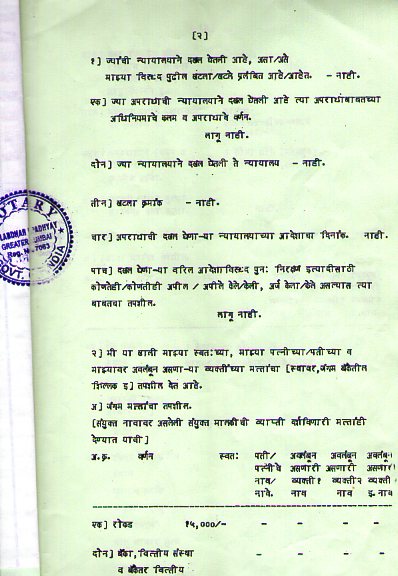 [२]
१] ज्यांची न्यायालयाने दखल घेतली आहे, असा/असे
माझ्या विरुध्द पुढील खटला/खटले प्रलंबित आहे/आहेत. - नाही.
एक] ज्या अपराधाची न्यायालयाने दखल घेतली आहे त्या अपराधांबाबतच्या
अधिनियमाचे कलम व अपराधाचे वर्णन.
लागू नाही.
दोन] ज्या न्यायालयाने दखल घेतली ते न्यायालय - नाही.
तीन] खटला क्रमांक - नाही.
चार] अपराधाची दखल घेणा-या न्यायालयाच्या आदेशाचा दिनांक. नाही.
पाच] दखल घेणा-या वरिल आदेशाविरुध्द पुनः निरीक्षण इत्यादीसाठी
कोणतेही/कोणतीही अपील / अपीले केले/केली, अर्ज केला/केले असल्यास त्या
बाबतचा तपशील.
लागू नाही.
२] मी या खाली माझ्या स्वतःच्या, माझ्या पत्नीच्या/पतीच्या व
माझ्यावर अवलंबून असणा-या व्यक्तींच्या मत्तांचा [स्थावर,जंगम बँकेतील
शिल्लक इ] तपशील देत आहे.
अ] जंगम मत्तांचा तपशील.
[संयुक्त नावावर असलेली संयुक्त मालकीची व्याप्ती दर्शविणारी मत्ताही
देण्यात यावी]
अ.क्र. वर्णन स्वतः पती/ अवलंबून अवलंबून अवलंबून
पत्नीचे असणारी असणारी असणारी
नाव/ व्यक्ती१ व्यक्ती२ व्यक्ती
नावे. नाव नाव इ. नाव
एक] रोकड १५,०००/- - - - -
दोन] बँका,वित्तीय संस्था - - - -
व बँकेतर वित्तीय
NOTARY
GREATER MUMBAI
Reg. No. 7063
GOVT. INDIA